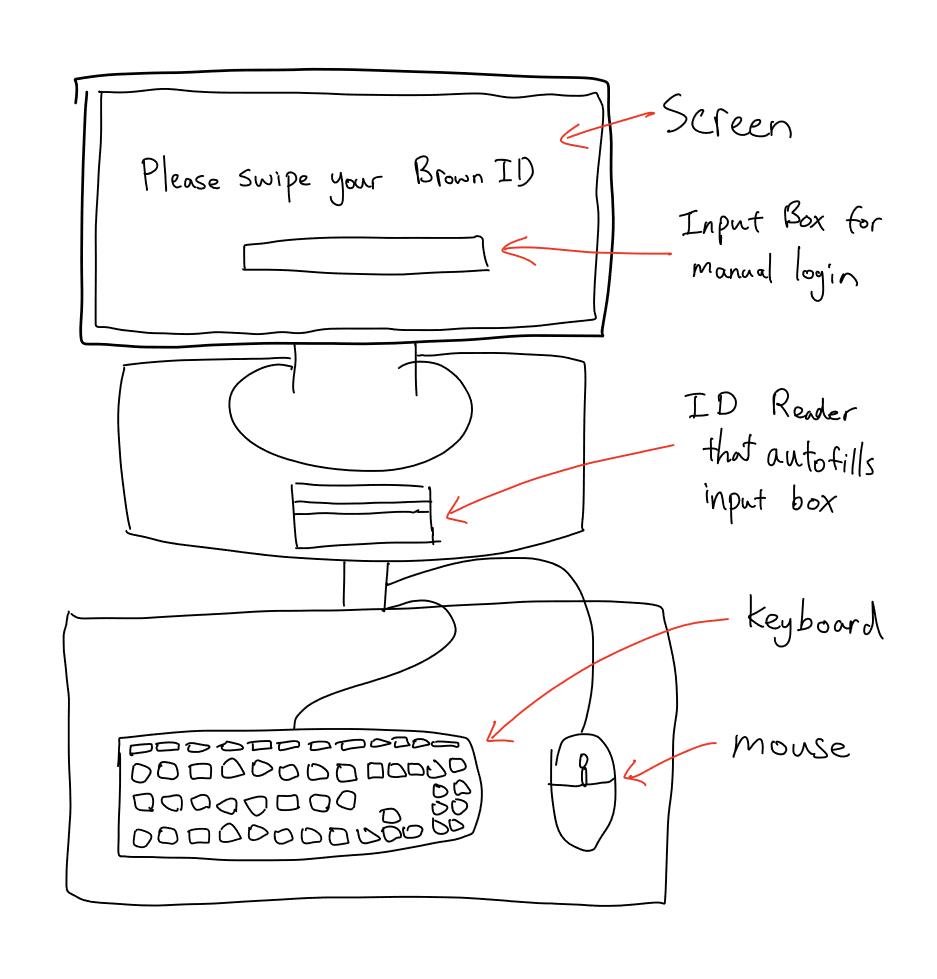 Screen
Please swipe your Brown ID
Input Box for
manual login
ID Reader
that autofills
input box
keyboard
mouse